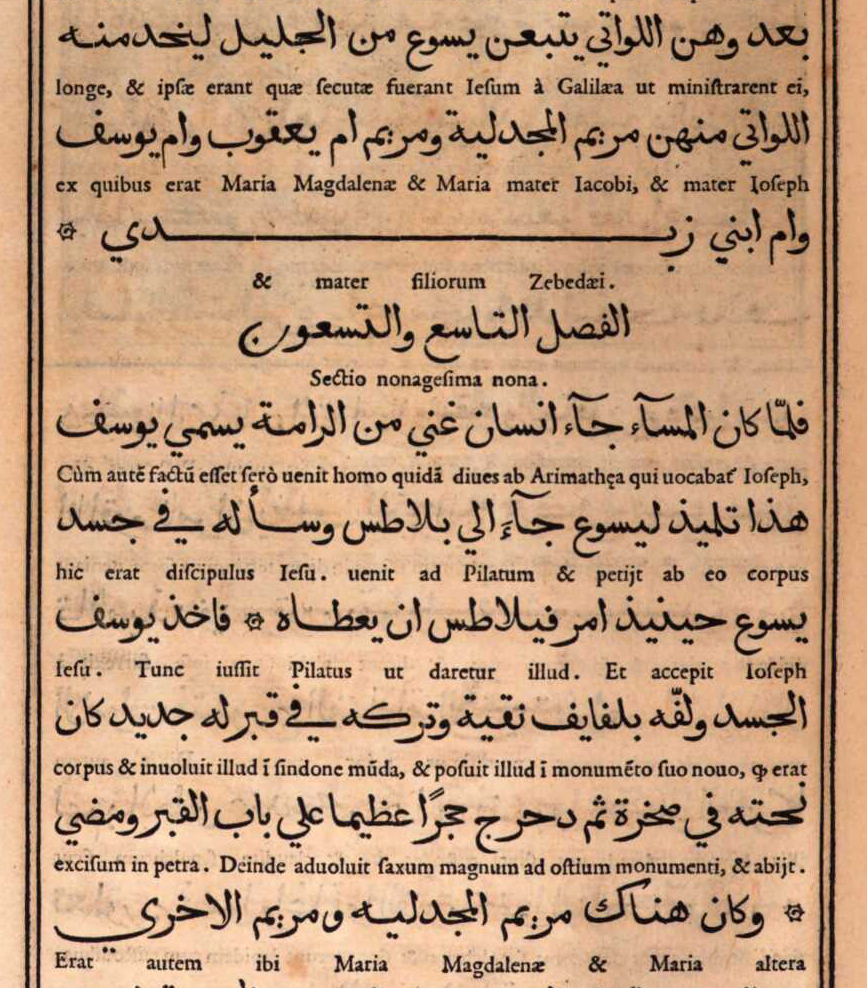 بعد وهن اللواتي يتبعن يسوع من الجليل ليخدمنه
longe, & ipsæ erant quæ secutæ fuerant Iesum à Galilæa ut ministrarent ei,
اللواتي منهن مريم المجدلية ومريم ام يعقوب وام يوسف
ex quibus erat Maria Magdalenæ & Maria mater Iacobi, & mater Ioseph
وام ابني زبـــدي ۞
& mater filiorum Zebedæi.
الفصل التاسع والتسعون
Sectio nonagesima nona.
فلمّا كان المسآء جآء انسان غني من الرامة يسمي يوسف
Cùm autẽ factũ esset serò uenit homo quidã diues ab Arimathęa qui uocabat᷒ Ioseph,
هذا تلميذ ليسوع جآءَ الي بلاطس وسأله في جسد
hic erat discipulus Iesu. uenit ad Pilatum & petijt ab eo corpus
يسوع حينيذ امر فيلاطس ان يعطاه ۞ فاخذ يوسف
Iesu. Tunc iussit Pilatus ut daretur illud. Et accepit Ioseph
الجسد ولفّه بلفايف نقية وتركه في قبر له جديد كان
corpus & inuoluit illud ĩ sindone mũda, & posuit illud ĩ monumẽto suo nouo, ꝙ erat
نحته في صخرة ثم دحرج حجرًا عظيما علي باب القبر ومضي
excisum in petra. Deinde aduoluit saxum magnum ad ostium monumenti, & abijt.
۞ وكان هناك مريم المجدليه ومريم الاخري
Erat autem ibi Maria Magdalenæ & Maria altera